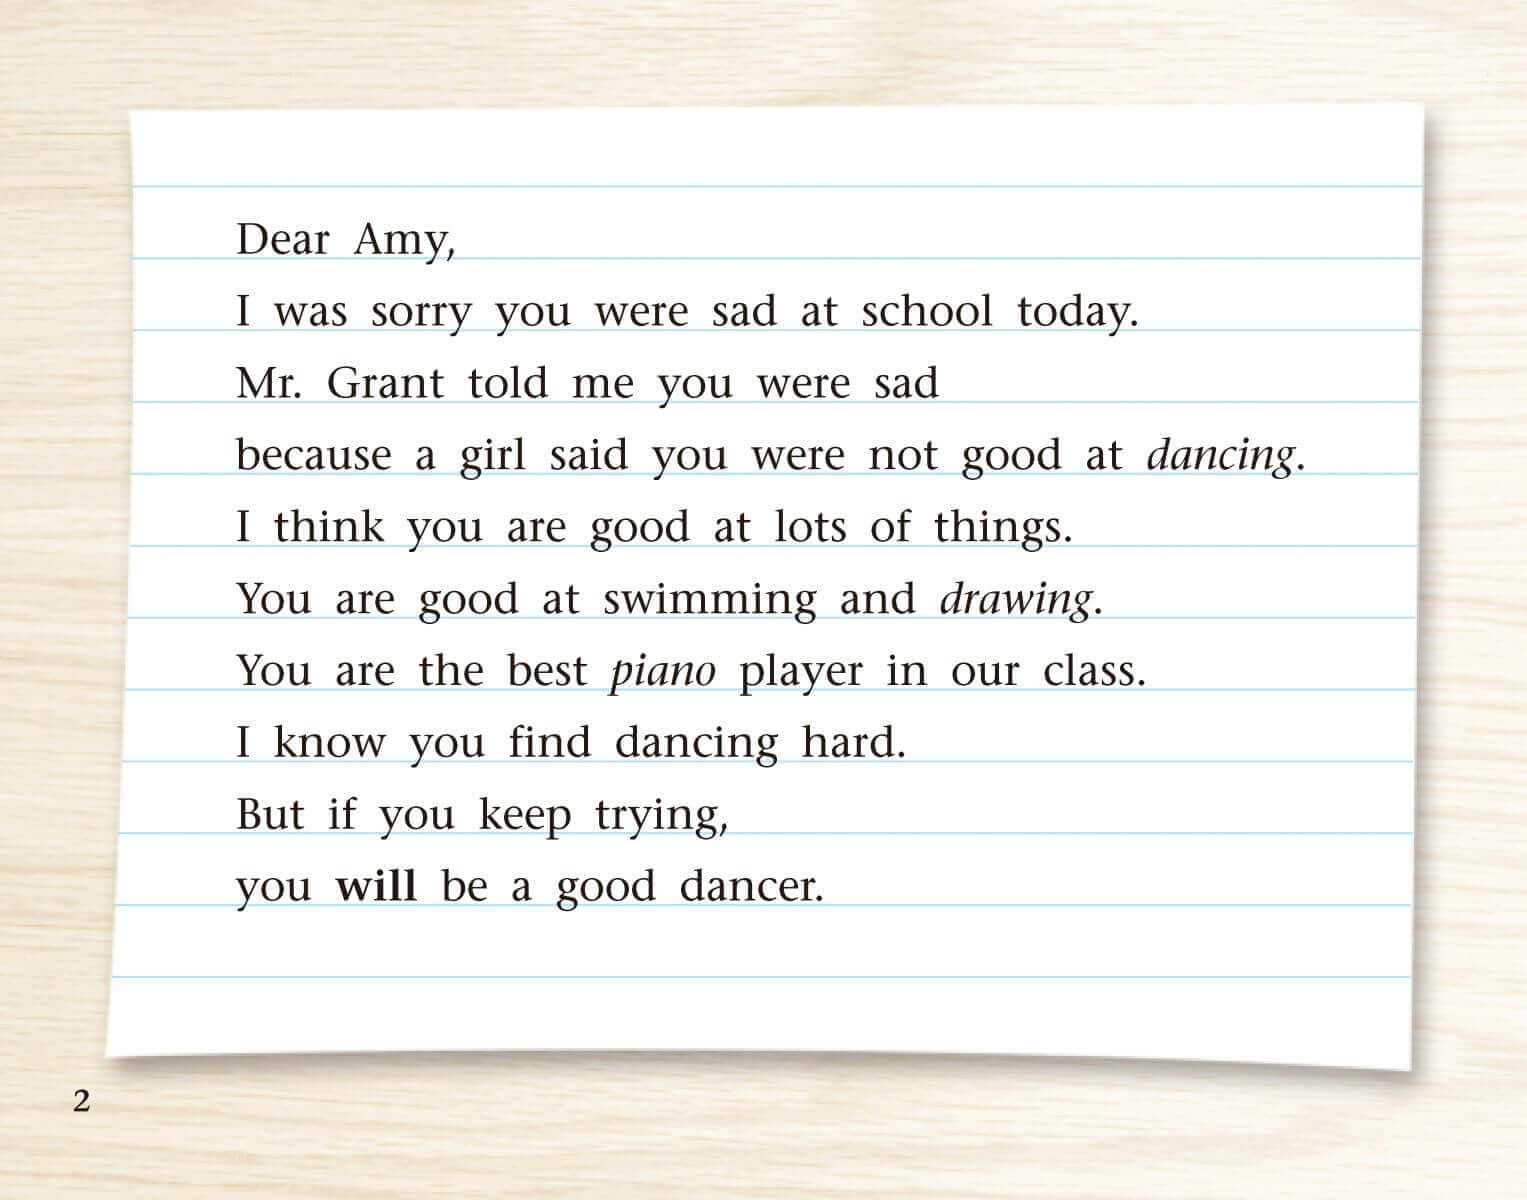 Dear Amy,
I was sorry you were sad at school today.
Mr. Grant told me you were sad
because a girl said you were not good at dancing.
I think you are good at lots of things.
You are good at swimming and drawing.
You are the best piano player in our class.
I know you find dancing hard.
But if you keep trying,
you will be a good dancer.
2